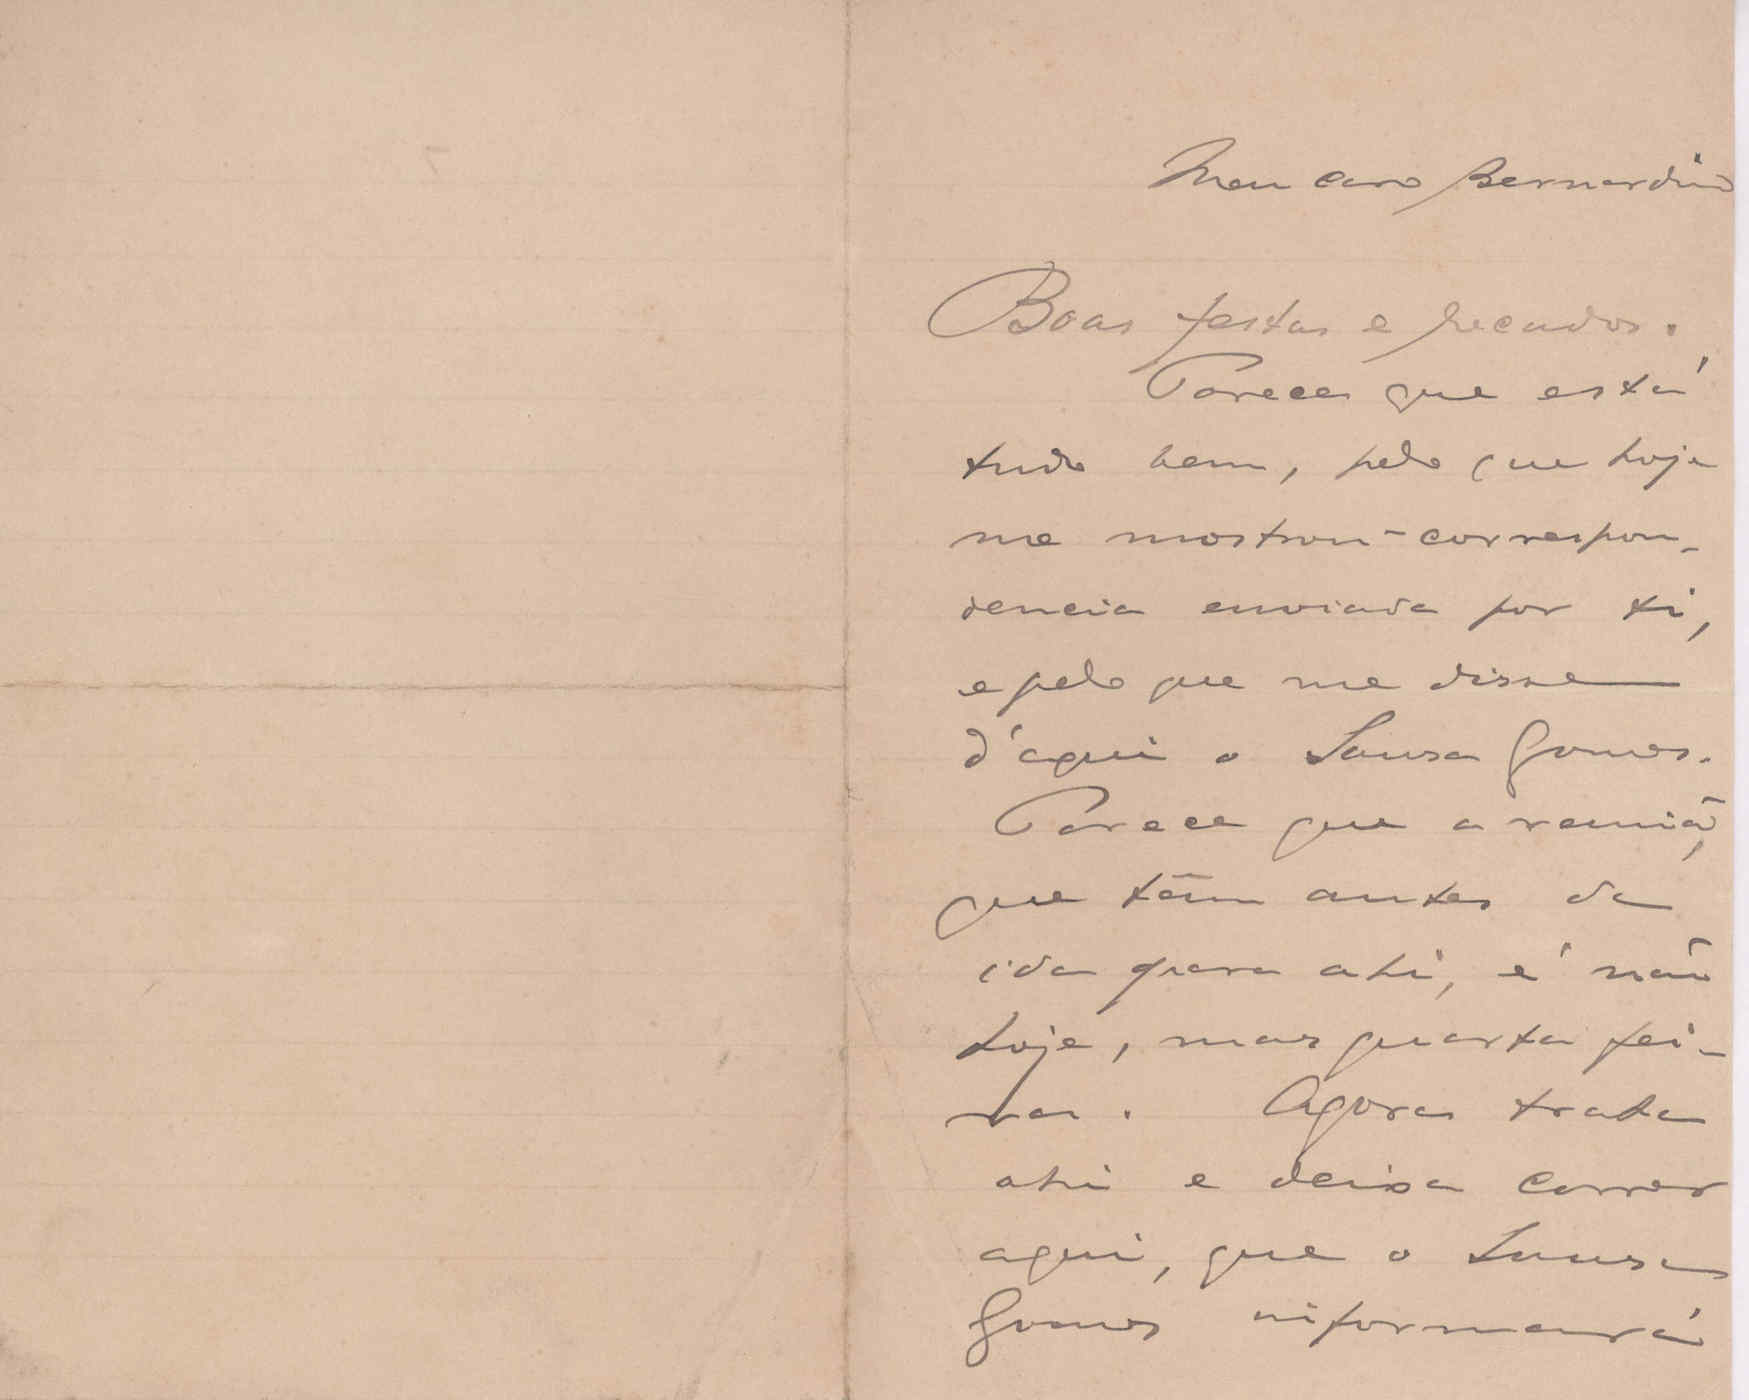 Meu caro Bernardino
Boas festas e recados.
Parece que está
tudo bem, pelo que hoje
me mostrou - correspon-
dencia enviada por ti,
e pelo que me disse
d'aqui o Sousa Gomes.
Parece que a reunião,
que têm antes da
ida para ahi, é não
hoje, mas quarta fei-
ra. Agora trata
ahi e deixa correr
aqui, que o Sousa
Gomes informará